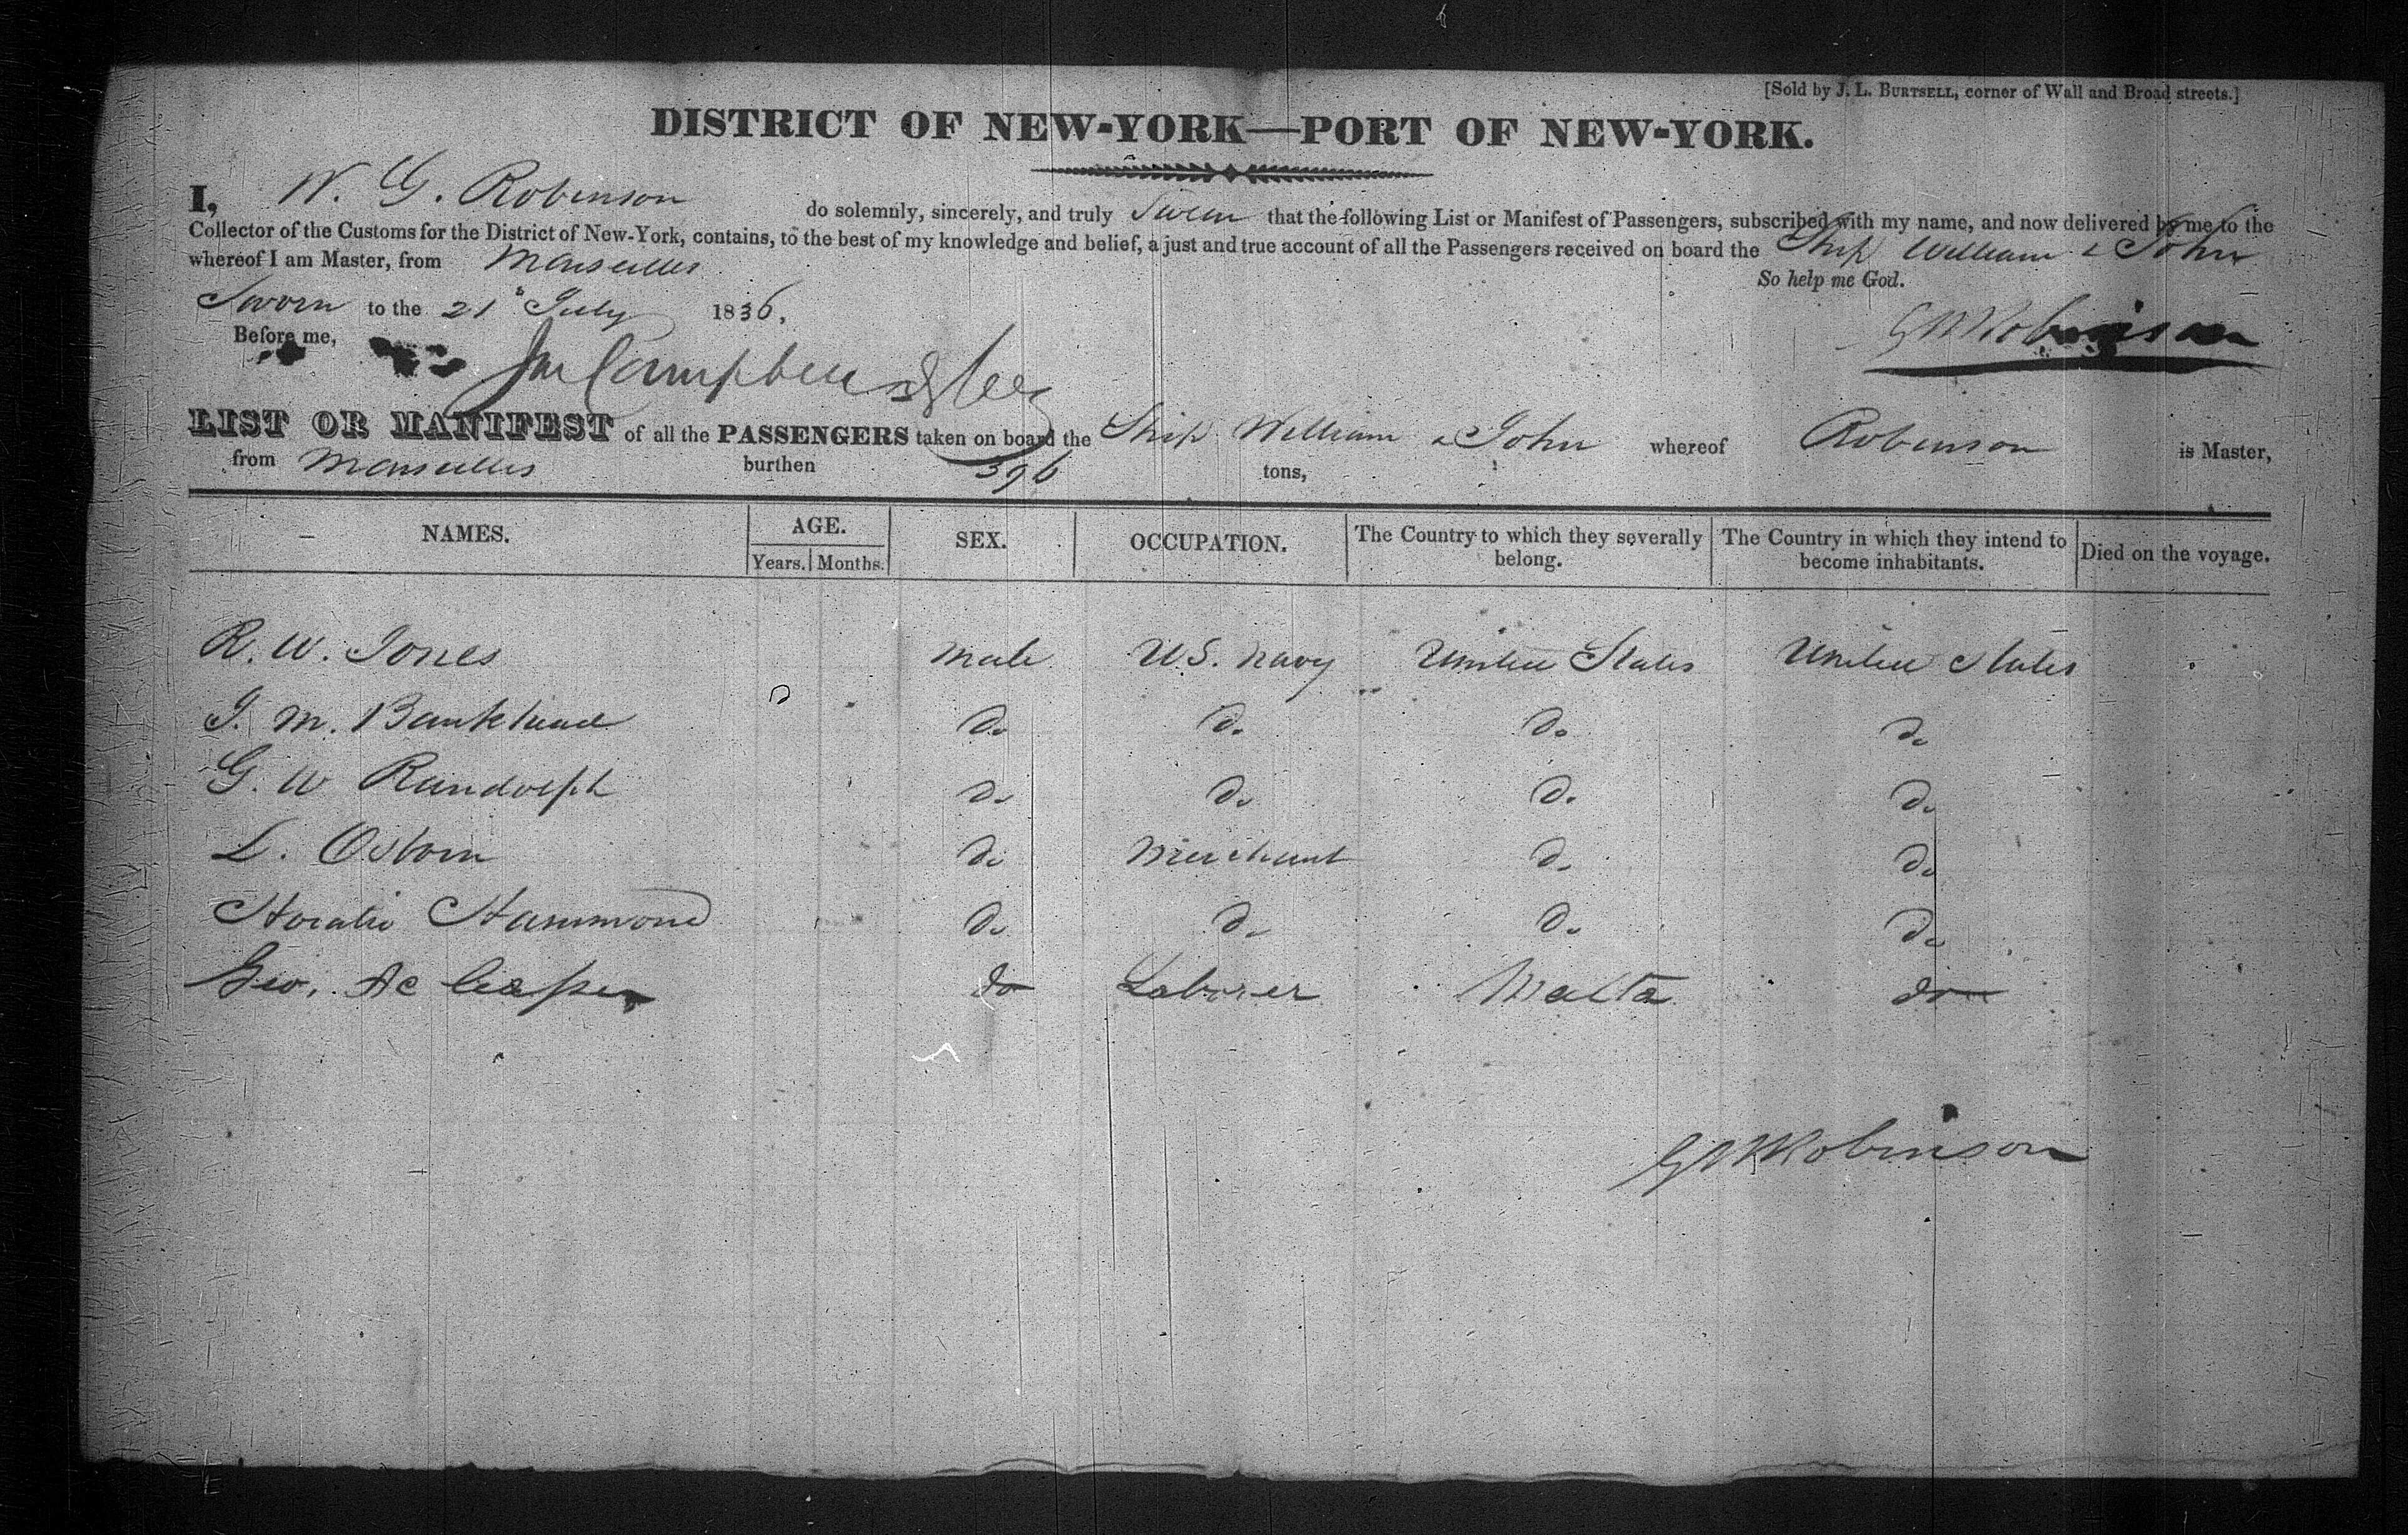 [Sold by J. L. BURTSELL, corner of Wall and Broad streets.]
DISTRICT OF NEW-YORK—PORT OF NEW-YORK.
I, W. G. Robinson do solemnly, sincerely, and truly Swear that the following List or Manifest of Passengers, subscribed with my name, and now delivered by me to the
Collector of the Customs for the District of New-York, contains, to the best of my knowledge and belief, a just and true account of all the Passengers received on board the Ship William & John
whereof I am Master, from Marseilles
So help me God.
Sworn to the 21 July 1836,
GW Robinson
Before me,
Campbell
LIST OR MANIFEST of all the PASSENGERS taken on board the Ship William & John whereof Robinson is Master,
from Marseilles burthen 396 tons,
NAMES. AGE. SEX. OCCUPATION. The Country to which they severally belong. The Country in which they intend to become inhabitants. Died on the voyage.
Years. Months.
R. W. Jones male U.S. Navy United States United States
J. M. Bankhead do do do do
G. W Randolph do do do do
L. Osborn do Merchant do do
Horatio Hammond do do do do
Geo. do Laborer Malta do
GW Robinson